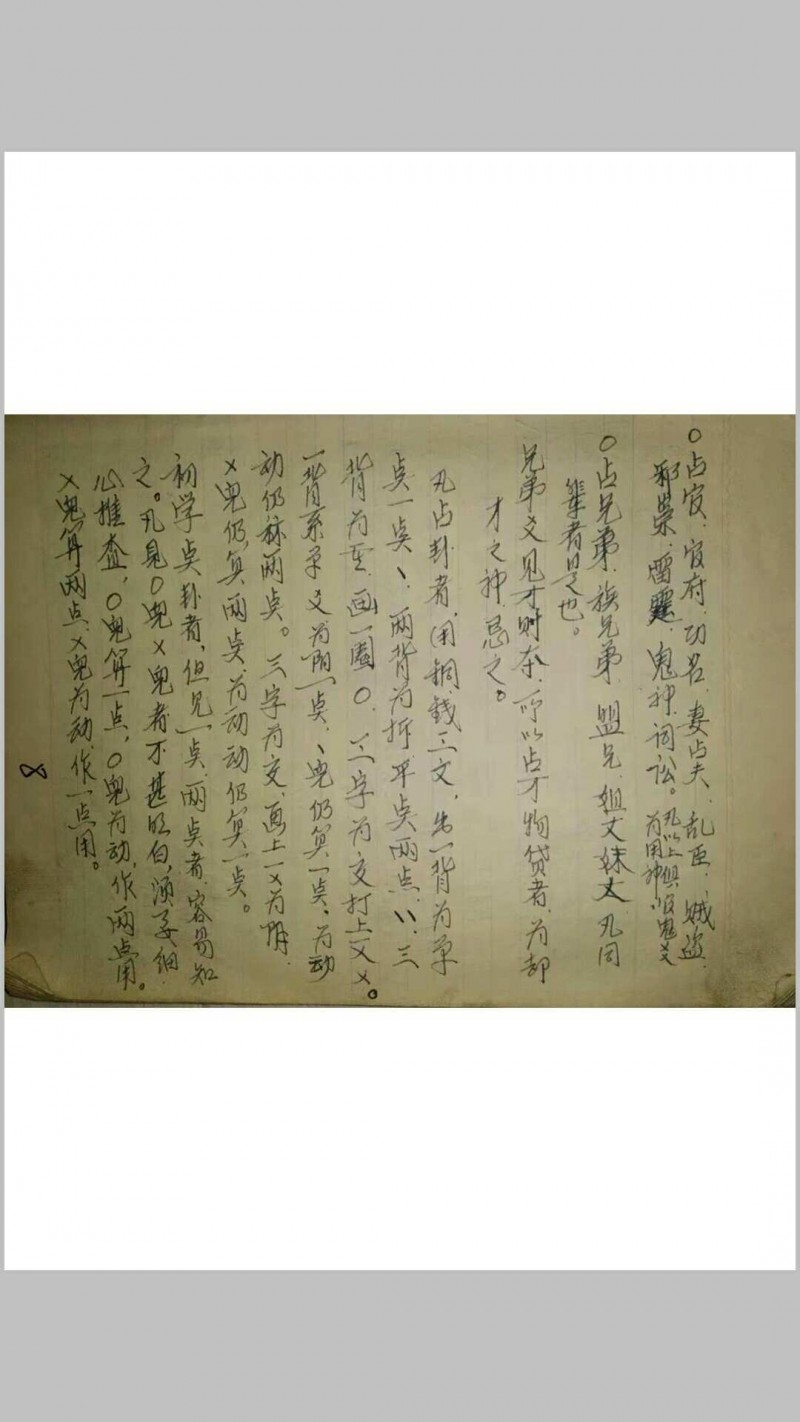 ○占官、官府、功名、妻占夫、乱臣、贼盗、
邪祟、雷霆、鬼神、词讼。凡以上俱以官鬼爻
为用神、
○占兄弟、族兄弟、盟兄、姐丈妹丈凡同
辈者是也。
兄弟爻见才则夺、所以占才物贷者、为却
才之神、忌之。
凡占卦者、用铜钱三文，出一背为单
点一点丶、两背为拆平点两点、丶丶、三
背为重、画一圈○、三字为交打上乂×。
一背系单爻为阴一点、丶鬼仍算一点、为动
动仍称两点。三字为交、画上一×为阴、
×鬼仍算两点、为动动仍算一点。
初学点卦者、但见一点、两点者、容易知
之。凡见○鬼×鬼者不甚明白，须要细
心推查，○鬼算一点，○鬼为动，作两点用。
×鬼算两点、×鬼为动、作一点用。
8